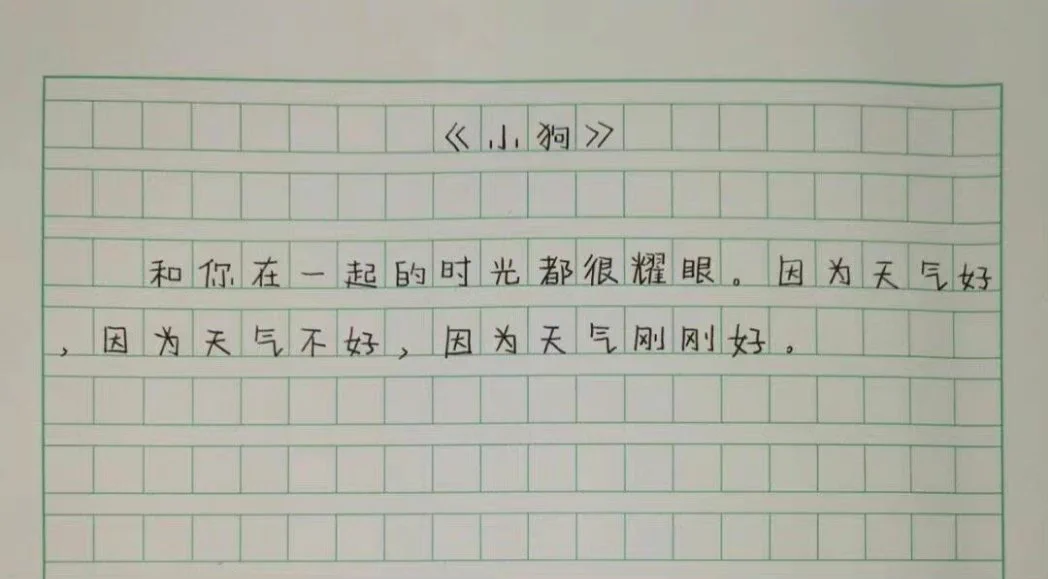 《小狗》
和你在一起的时光都很耀眼。因为天气好
，因为天气不好，因为天气刚刚好。